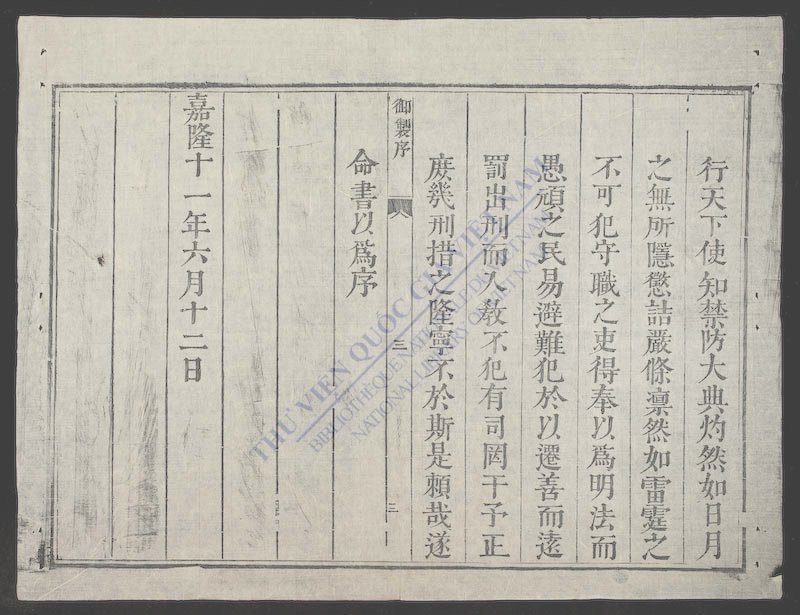 行天下使知禁防大典灼然如日月
之無所隱懲詰嚴條凛然如雷霆之
不可犯守職之吏得奉以爲明法而
愚頑之民易避難犯於以遷善而遠
罰出刑而入教不犯有司罔干予正
庶幾刑措之隆寧不於斯是賴哉遂
命書以爲序
御製序
三
三
嘉隆十一年六月十二日
THƯ VIỆN QUỐC GIA VIỆT NAM
BIBLIOTHÈQUE NATIONALE DU VIETNAM
NATIONAL LIBRARY OF VIETNAM